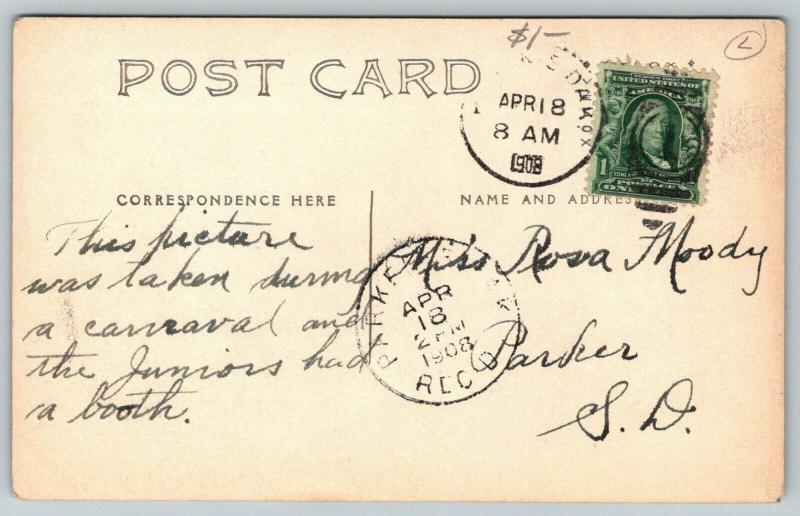 $1-
L
POST CARD
S. DAK
APR 18
8 AM
1908
SERIES 1902
UNITED STATES OF
AMERICA
1
POSTAGE
ONE
CORRESPONDENCE HERE
NAME AND ADDRESS
This picture
was taken during
a carnaval and
the Juniors had
a booth.
PARKER
APR
18
2 PM
1908
REC'D
Miss Rosa Moody
Parker
S.D.